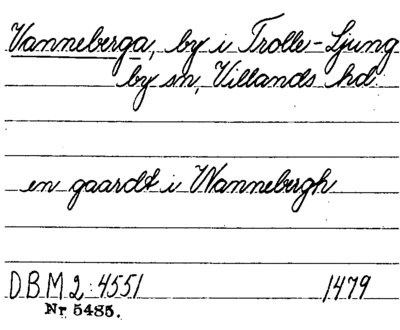 Vanneberga, by i Trolle-Ljung
by sn, Villands hd.
en gaardt i Wannebergh
DBM 2:4551 1479
Nr 5485.